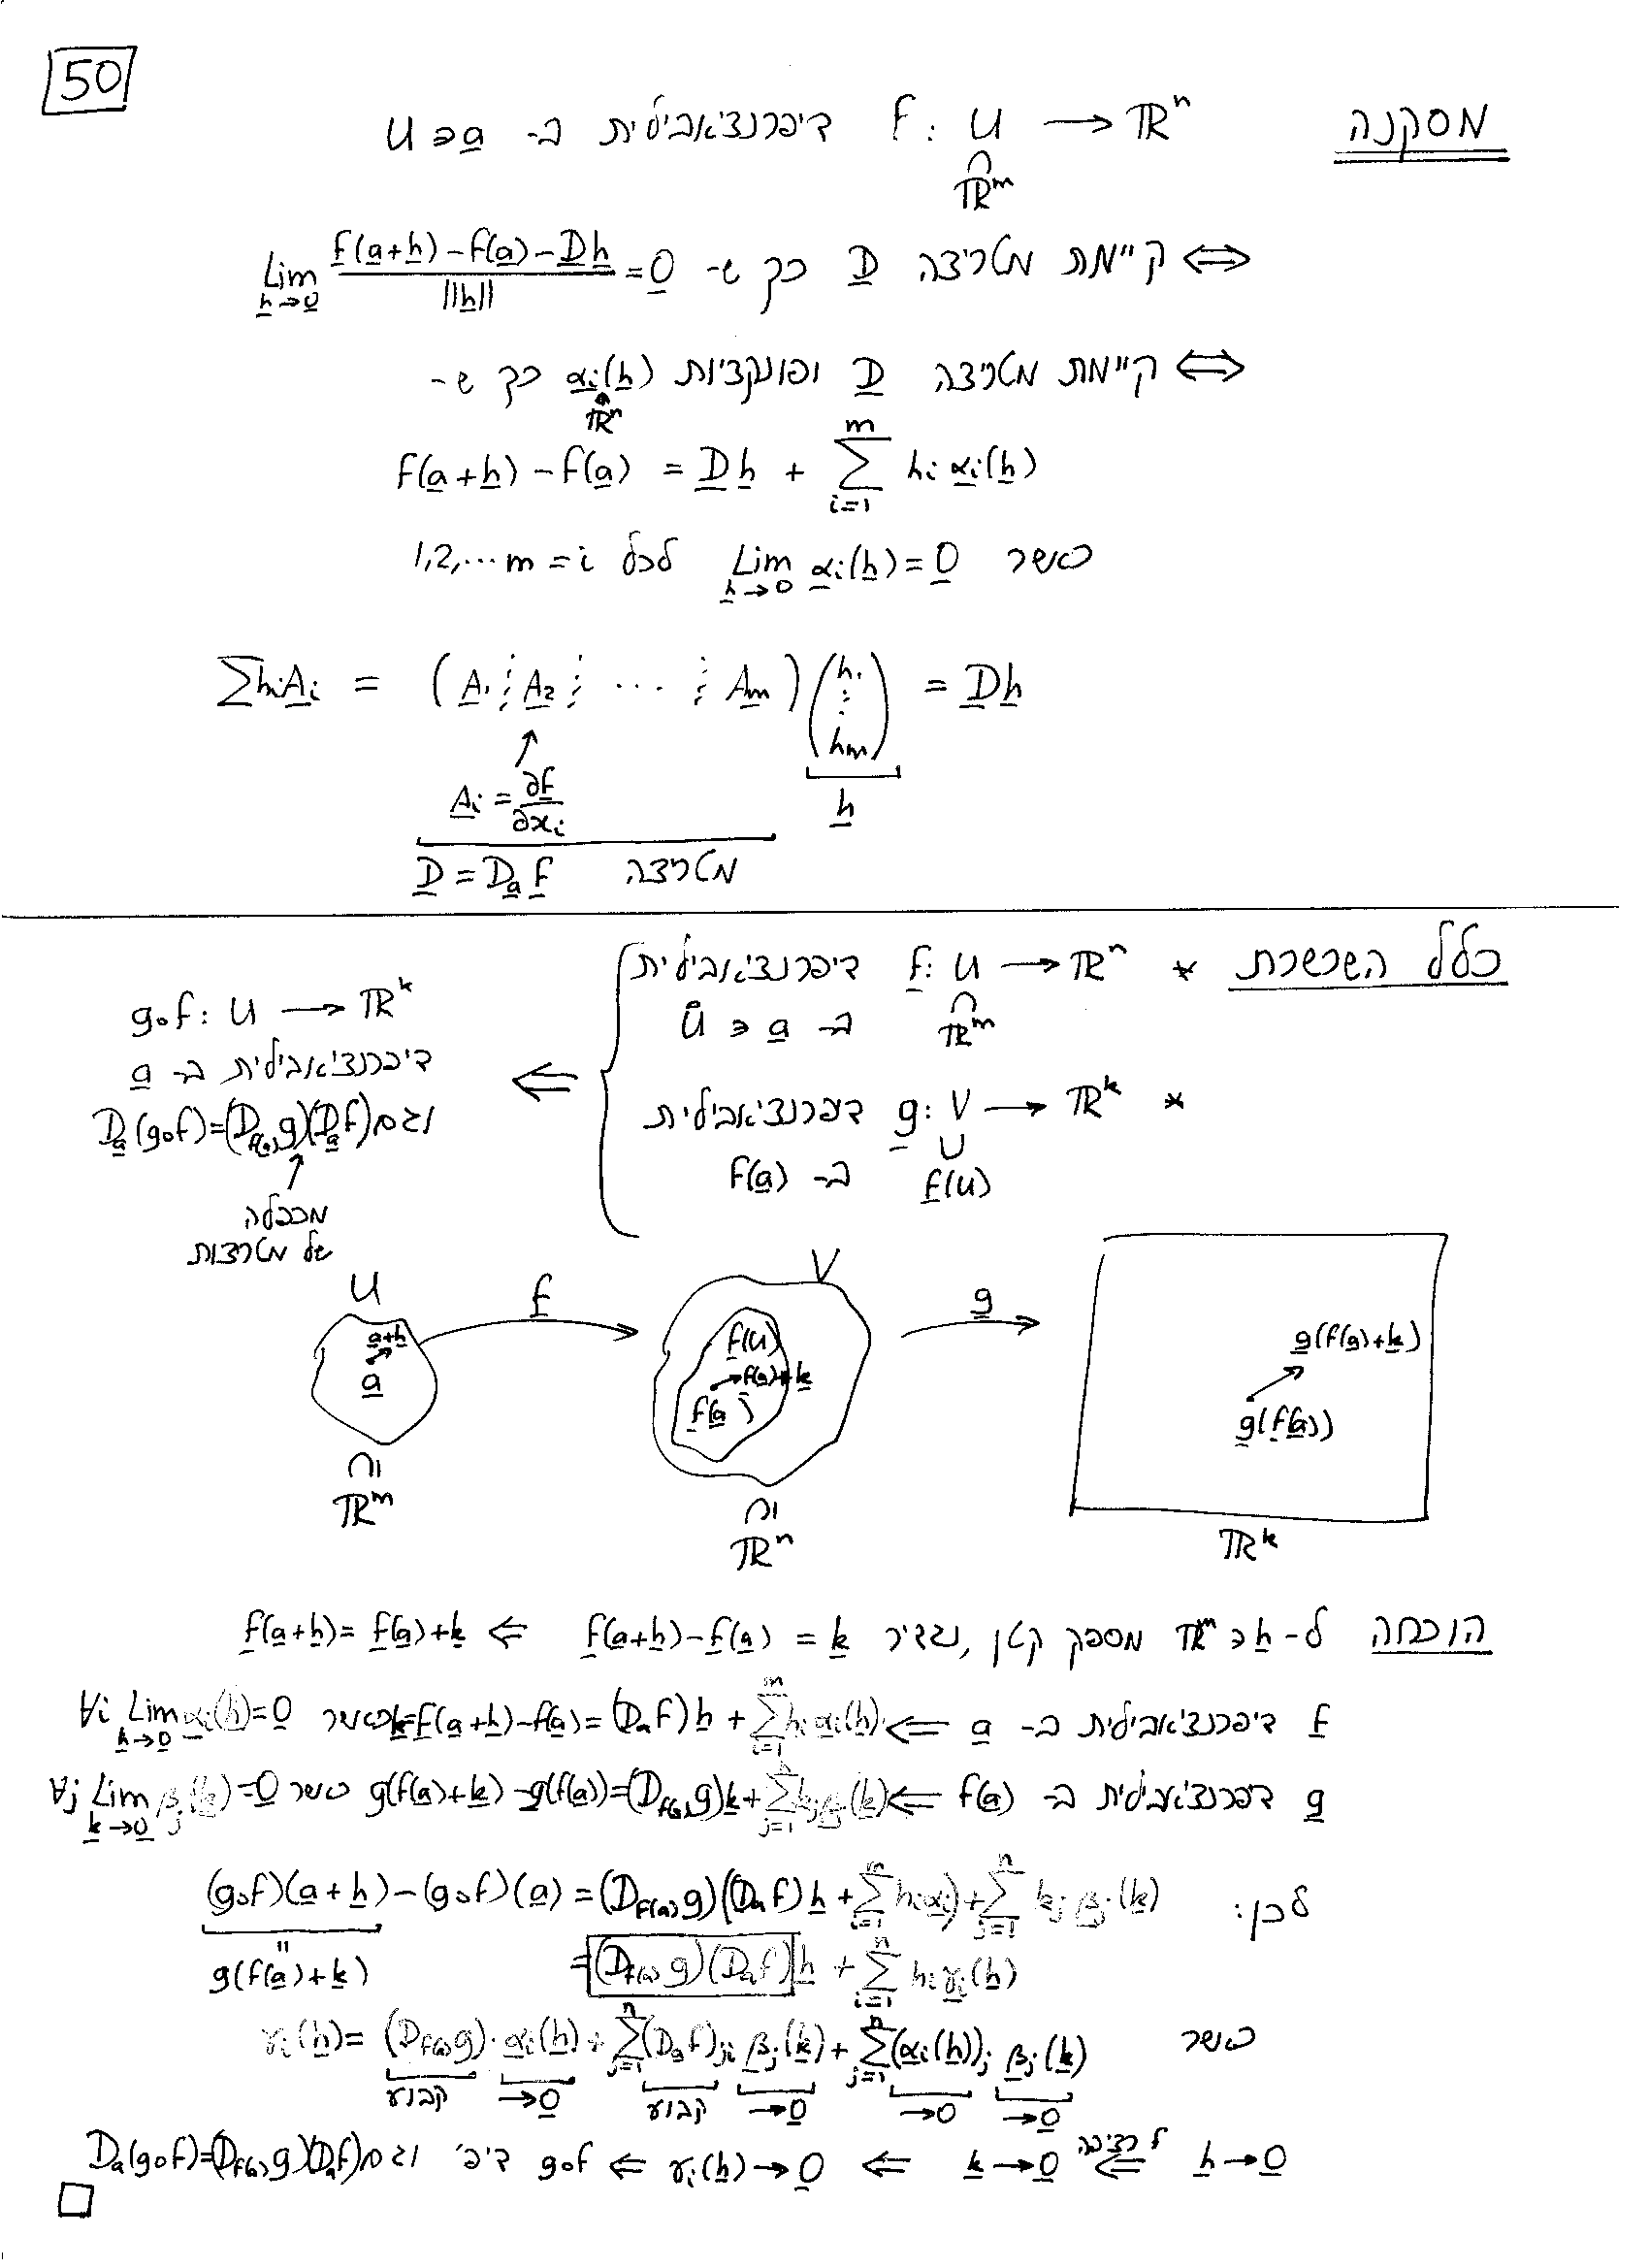 50
מסקנה f: U → ℝⁿ דיפרנציאבילית ב- a ∈ U
∩
ℝᵐ
⇔ קיימת מטריצה D כך ש- Lim_{h→0} (f(a+h)-f(a)-Dh)/||h|| = 0
⇔ קיימת מטריצה D ופונקציות αᵢ(h) כך ש-
ℝⁿ
f(a+h) - f(a) = Dh + Σ_{i=1}^{m} hᵢ αᵢ(h)
כאשר Lim_{h→0} αᵢ(h) = 0 לכל i = 1,2,...m
ΣhᵢAᵢ = (A₁ ⋮ A₂ ⋮ ... ⋮ Aₘ)(h₁ ⋮ hₘ) = Dh
Aᵢ = ∂f/∂xᵢ
h
מטריצה D = Dₐf
כלל השרשרת * f: U → ℝⁿ דיפרנציאבילית
∩
ℝᵐ
ב- a ∈ Ů
* g: V → ℝᵏ דיפרנציאבילית
∪
f(U)
ב- f(a)
⇐
g∘f: U → ℝᵏ
דיפרנציאבילית ב- a
וגם Dₐ(g∘f)=(D_{f(a)}g)(Dₐf)
מכפלה
של מטריצות
U
a+h
a
∩ı
ℝᵐ
f
V
f(U)
f(a)+k
f(a)
∩ı
ℝⁿ
g
g(f(a)+k)
g(f(a))
ℝᵏ
הוכחה ל- h ∈ ℝᵐ מספק קטן, נגדיר k = f(a+h)-f(a) ⇐ f(a+h) = f(a)+k
f דיפרנציאבילית ב- a ⇐ k=f(a+h)-f(a)=(Dₐf)h + Σ_{i=1}^{m} hᵢαᵢ(h) כאשר ∀i Lim_{h→0} αᵢ(h)=0
g דיפרנציאבילית ב- f(a) ⇐ g(f(a)+k)-g(f(a))=(D_{f(a)}g)k+Σ_{j=1}^{n} kⱼβⱼ(k) כאשר ∀j Lim_{k→0} βⱼ(k)=0
לכן: (g∘f)(a+h)-(g∘f)(a) = (D_{f(a)}g)((Dₐf)h + Σ_{i=1}^{m} hᵢαᵢ)+Σ_{j=1}^{n} kⱼ βⱼ(k)
"
g(f(a)+k)
= (D_{f(a)}g)(Dₐf)h + Σ_{i=1}^{n} hᵢγᵢ(h)
כאשר γᵢ(h)= (D_{f(a)}g)·αᵢ(h) + Σ_{j=1}^{n}(Dₐf)ⱼᵢ βⱼ(k) + Σ_{j=1}^{n}(αᵢ(h))ⱼ βⱼ(k)
קבוע →0 קבוע →0 →0 →0
h→0 ⇐ f רציפה k→0 ⇐ γᵢ(h)→0 ⇐ g∘f דיפ' וגם Dₐ(g∘f)=(D_{f(a)}g)(Dₐf)
□